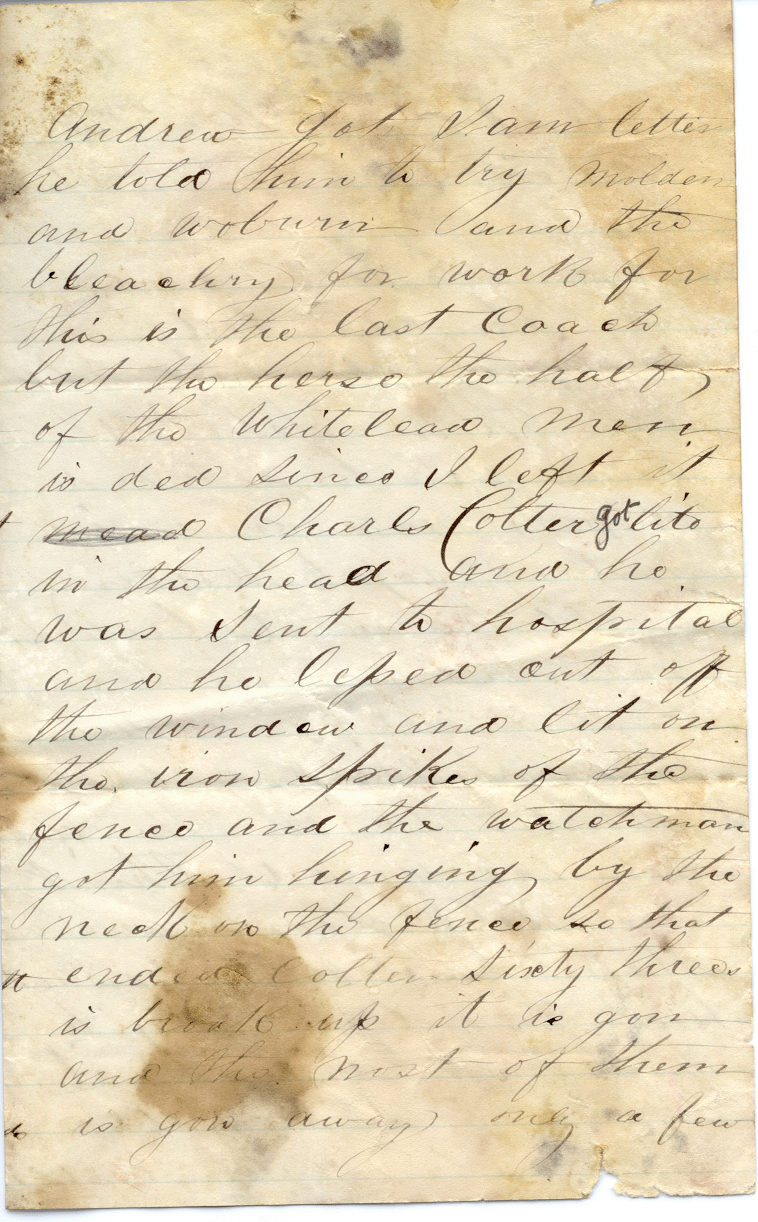 Andrew got Sam letter
he told him to try Molden
and woburn and the
bleachry for work for
this is the last Coach
but the herse the half
of the Whitelead men
is ded Since I left it
mead Charls Colter got lito
in the head and he
was Sent to hospital
and he leped out off
the window and lit on
the iron Spikes of the
fence and the watchman
got him hinging by the
neck on the fence so that
ended Colter Sixty threes
is broak up it is gon
and the most of them
is gon away only a few